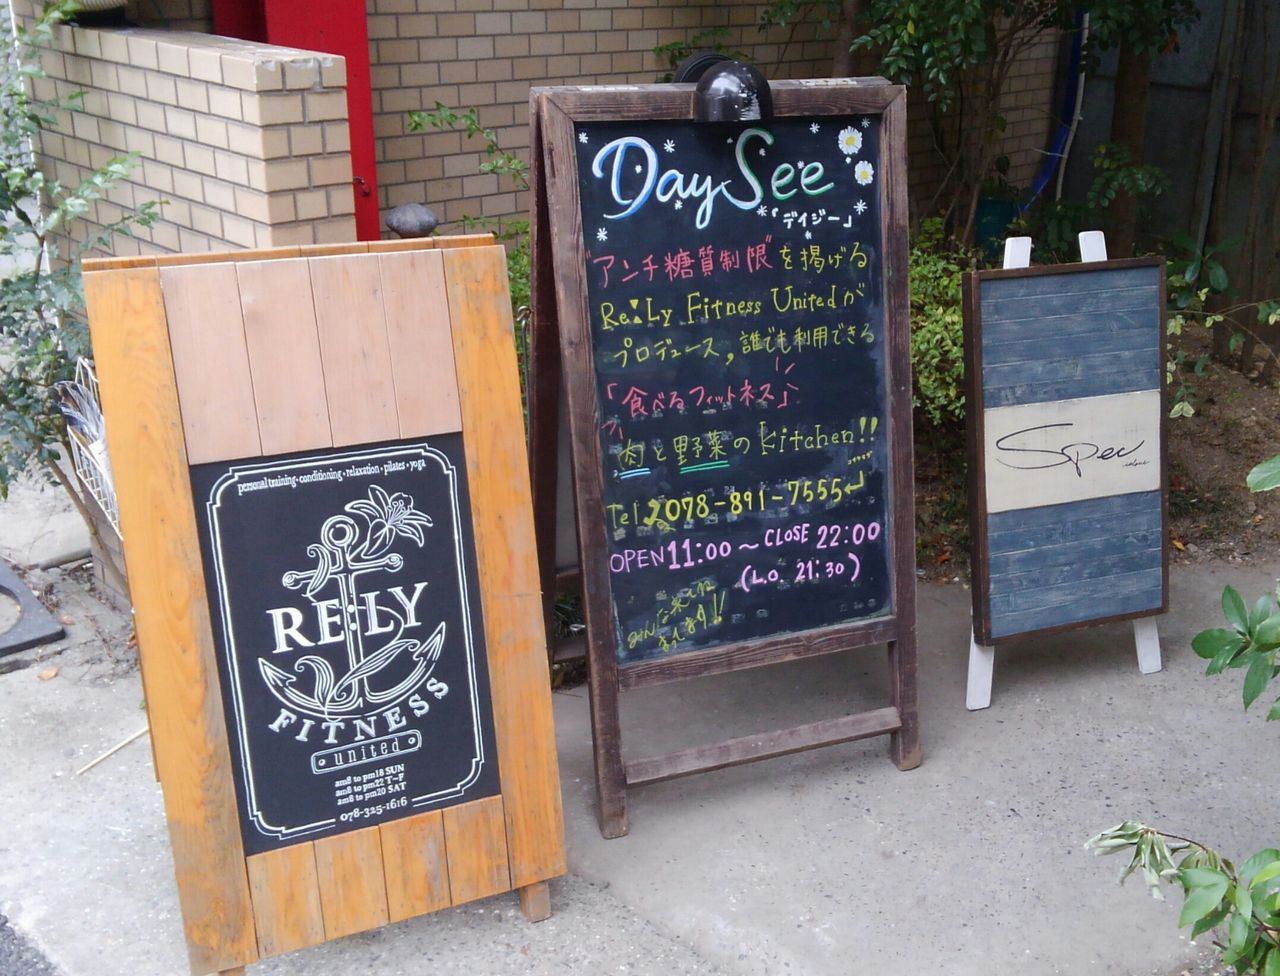 personal training・conditioning・relaxation・pilates・yoga
RE:LY
FITNESS
united
am8 to pm18 SUN
am8 to pm22 T-F
am8 to pm20 SAT
078-325-1616
DaySee
「デイジー」
"アンチ糖質制限"を掲げる
Re:Ly Fitness Unitedが
プロデュース,誰でも利用できる
「食べるフィットネス」
肉と野菜のkitchen!!
Tel 078-891-7555
OPEN 11:00 ~ CLOSE 22:00
(L.O. 21:30)
みんな来てね
Spec